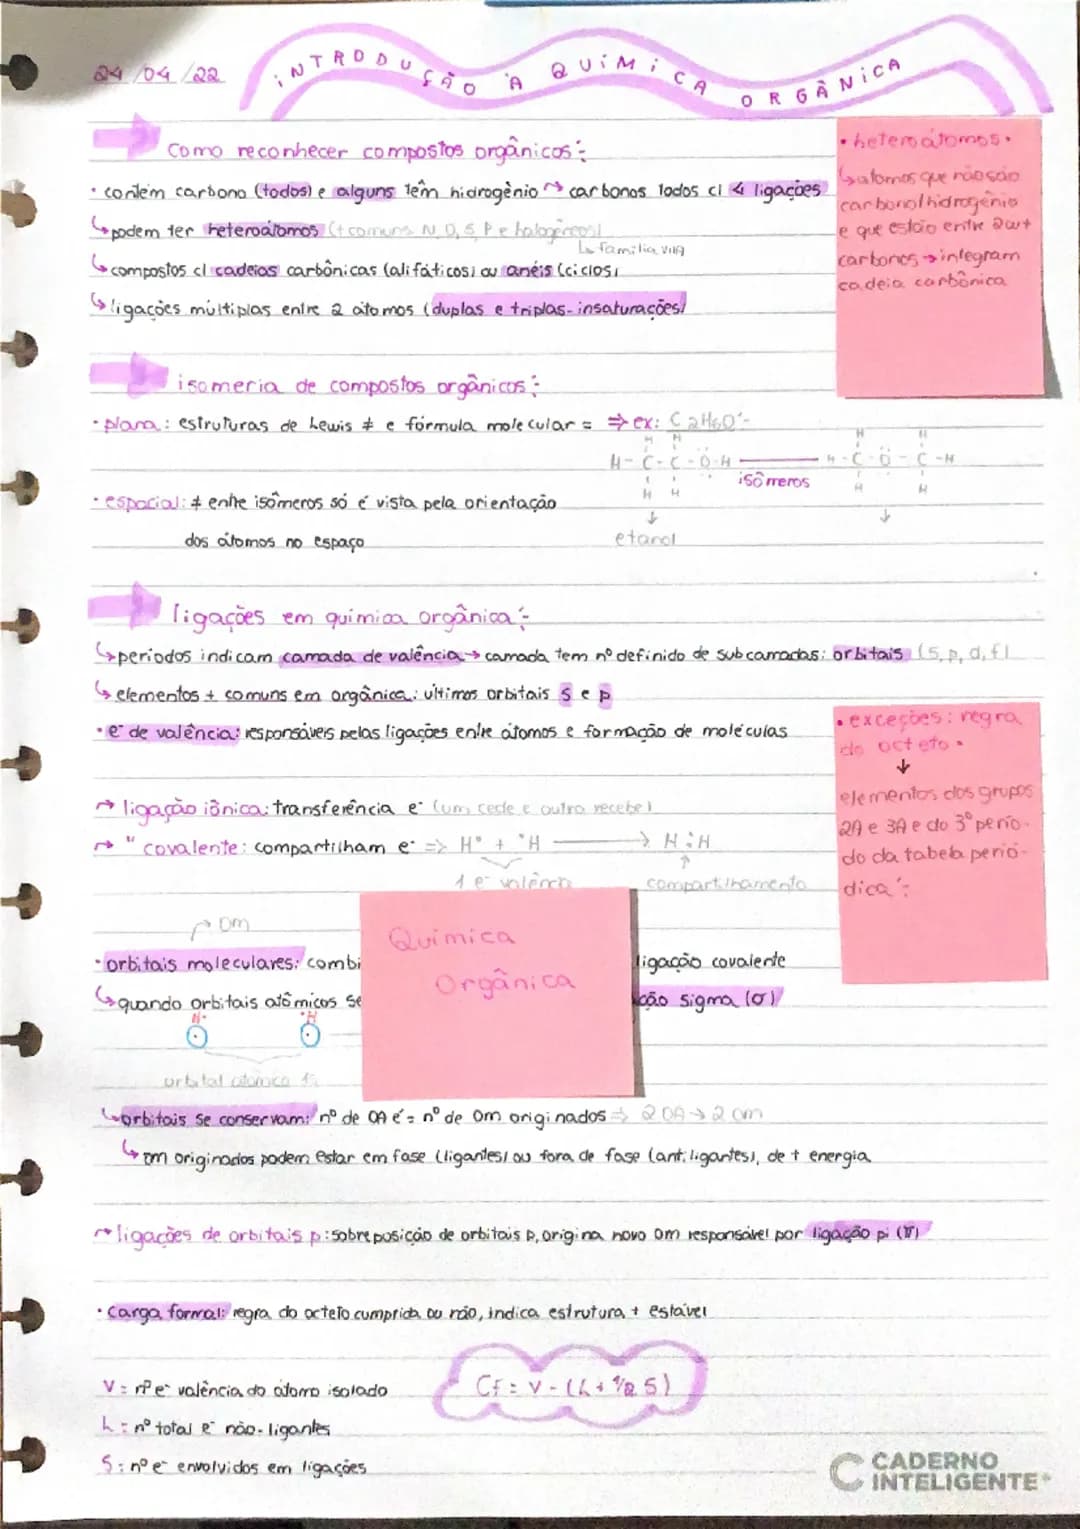 24/04/22
INTRODUÇÃO À QUÍMICA ORGÂNICA
Como reconhecer compostos orgânicos:
• contém carbono (todos) e alguns têm hidrogênio → carbonos todos c/ 4 ligações
↳ podem ter heteroátomos (+ comuns N, O, S, P e halogênios)
↳ família VIIA
↳ compostos c/ cadeias carbônicas (alifáticos) ou anéis (ciclos)
↳ ligações múltiplas entre 2 átomos (duplas e triplas - insaturações)
• heteroátomos •
↳ átomos que não são
carbono/hidrogênio
e que estão entre 2 ou +
carbonos → integram
cadeia carbônica
isomeria de compostos orgânicos:
• plana: estruturas de Lewis ≠ e fórmula molecular = ⇒ ex: C2H6O:
H H H H
H-C-C-O-H isômeros H-C-O-C-H
H H H H
• espacial: ≠ entre isômeros só é vista pela orientação
dos átomos no espaço
etanol
ligações em química orgânica:
↳ períodos indicam camada de valência → camada tem nº definido de subcamadas: orbitais (s, p, d, f)
↳ elementos + comuns em orgânica: últimos orbitais s e p
• e⁻ de valência: responsáveis pelas ligações entre átomos e formação de moléculas
• exceções: regra
do octeto •
↓
elementos dos grupos
2A e 3A e do 3º perío-
do da tabela perió-
dica:
→ ligação iônica: transferência e⁻ (um cede e outro recebe)
→ " covalente: compartilham e⁻ => H• + •H → H:H
1 e⁻ valência compartilhamento
OM
• orbitais moleculares: combi ligação covalente
↳ quando orbitais atômicos se ção sigma (σ)
Química
Orgânica
H• •H
orbital atômico 1s
↳ orbitais se conservam: nº de OA é = nº de OM originados ⇒ 2 OA → 2 OM
↳ OM originados podem estar em fase (ligantes) ou fora de fase (antiligantes), de + energia
→ ligações de orbitais p: sobreposição de orbitais p, origina novo OM responsável por ligação pi (π)
• Carga formal: regra do octeto cumprida ou não, indica estrutura + estável
Cf = V - (L + 1/2 S)
V = nº e⁻ valência do átomo isolado
L = nº total e⁻ não-ligantes
S: nº e⁻ envolvidos em ligações
CADERNO
INTELIGENTE